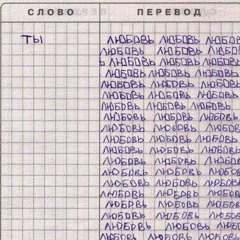 СЛОВО ПЕРЕВОД
ТЫ ЛЮБОВЬ ЛЮБОВЬ ЛЮБОВ
ЛЮБОВЬ ЛЮБОВЬ ЛЮБОВЬ
Ь ЛЮБОВЬ ЛЮБОВЬ ЛЮБОВЬ
ЛЮБОВЬ ЛЮБОВЬ ЛЮБОВЬ
ЛЮБОВЬ ЛЮБОВЬ ЛЮБОВЬ
ЛЮБОВЬ ЛЮБОВЬ ЛЮБОВЬ
ЛЮБОВЬ ЛЮБОВЬ ЛЮБОВЬ
ЛЮБОВЬ ЛЮБОВЬ ЛЮБОВЬ
ЛЮБОВЬ ЛЮБОВЬ ЛЮБОВЬ
ЛЮБОВЬ ЛЮБОВЬ ЛЮБОВЬ
ЛЮБОВЬ ЛЮБОВЬ ЛЮБОВЬ
ЛЮБОВЬ ЛЮБОВЬ ЛЮБОВЬ
ЛЮБОВЬ ЛЮБОВЬ ЛЮБОВЬ
ЛЮБОВЬ ЛЮБОВЬ ЛЮБОВЬ
ЛЮБОВЬ ЛЮБОВЬ ЛЮБОВЬ
ЛЮБОВЬ ЛЮБОВЬ ЛЮБОВЬ
ЛЮБОВЬ ЛЮБОВЬ ЛЮБОВЬ
ЛЮБОВЬ ЛЮБОВЬ ЛЮБОВЬ
ЛЮБОВЬ ЛЮБОВЬ ЛЮБОВЬ